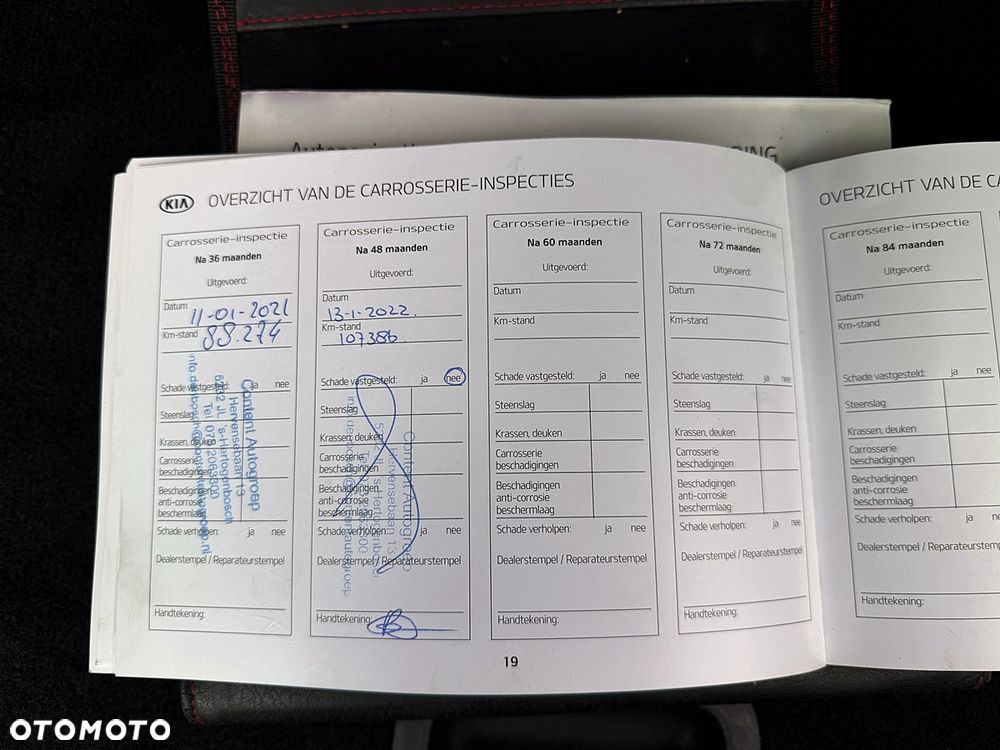 KIA OVERZICHT VAN DE CARROSSERIE-INSPECTIES
Carrosserie-inspectie
Na 36 maanden
Uitgevoerd:
Datum 11-01-2021
Km-stand 88.274
Schade vastgesteld: ja nee
Steenslag
Krassen, deuken
Carrosserie
beschadigingen
Beschadigingen
anti-corrosie
beschermlaag
Schade verholpen: ja nee
Dealerstempel / Reparateurstempel
Content Autogroep
Hervensebaan 13
5232 JL 's-Hertogenbosch
Handtekening:
Carrosserie-inspectie
Na 48 maanden
Uitgevoerd:
Datum
13-1-2022.
Km-stand
107386
Schade vastgesteld: ja nee
Steenslag
Krassen, deuken
Carrosserie
beschadigingen
Beschadigingen
anti-corrosie
beschermlaag
Schade verholpen: ja nee
Dealerstempel / Reparateurstempel
Content Autogroep
Hervensebaan 13
Handtekening:
Carrosserie-inspectie
Na 60 maanden
Uitgevoerd:
Datum
Km-stand
Schade vastgesteld: ja nee
Steenslag
Krassen, deuken
Carrosserie
beschadigingen
Beschadigingen
anti-corrosie
beschermlaag
Schade verholpen: ja nee
Dealerstempel / Reparateurstempel
Handtekening:
Carrosserie-inspectie
Na 72 maanden
Uitgevoerd:
Datum
Km-stand
Schade vastgesteld: ja nee
Steenslag
Krassen, deuken
Carrosserie
beschadigingen
Beschadigingen
anti-corrosie
beschermlaag
Schade verholpen: ja nee
Dealerstempel / Reparateurstempel
Handtekening:
19
OVERZICHT VAN DE CA
Carrosserie-inspectie
Na 84 maanden
Uitgevoerd:
Datum
Km-stand
Schade vastgesteld: ja nee
Steenslag
Krassen, deuken
Carrosserie
beschadigingen
Beschadigingen
anti-corrosie
beschermlaag
Schade verholpen: ja nee
Dealerstempel / Reparateurstemp
Handtekening:
OTOMOTO